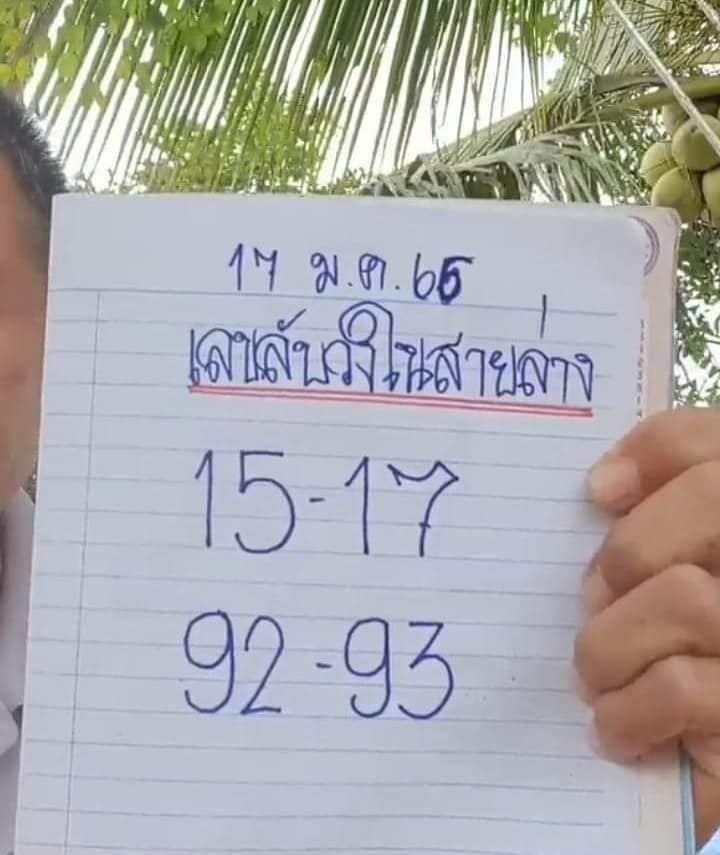 17 ม.ค.65
เลขลับวงในสายล่าง
15-17
92-93